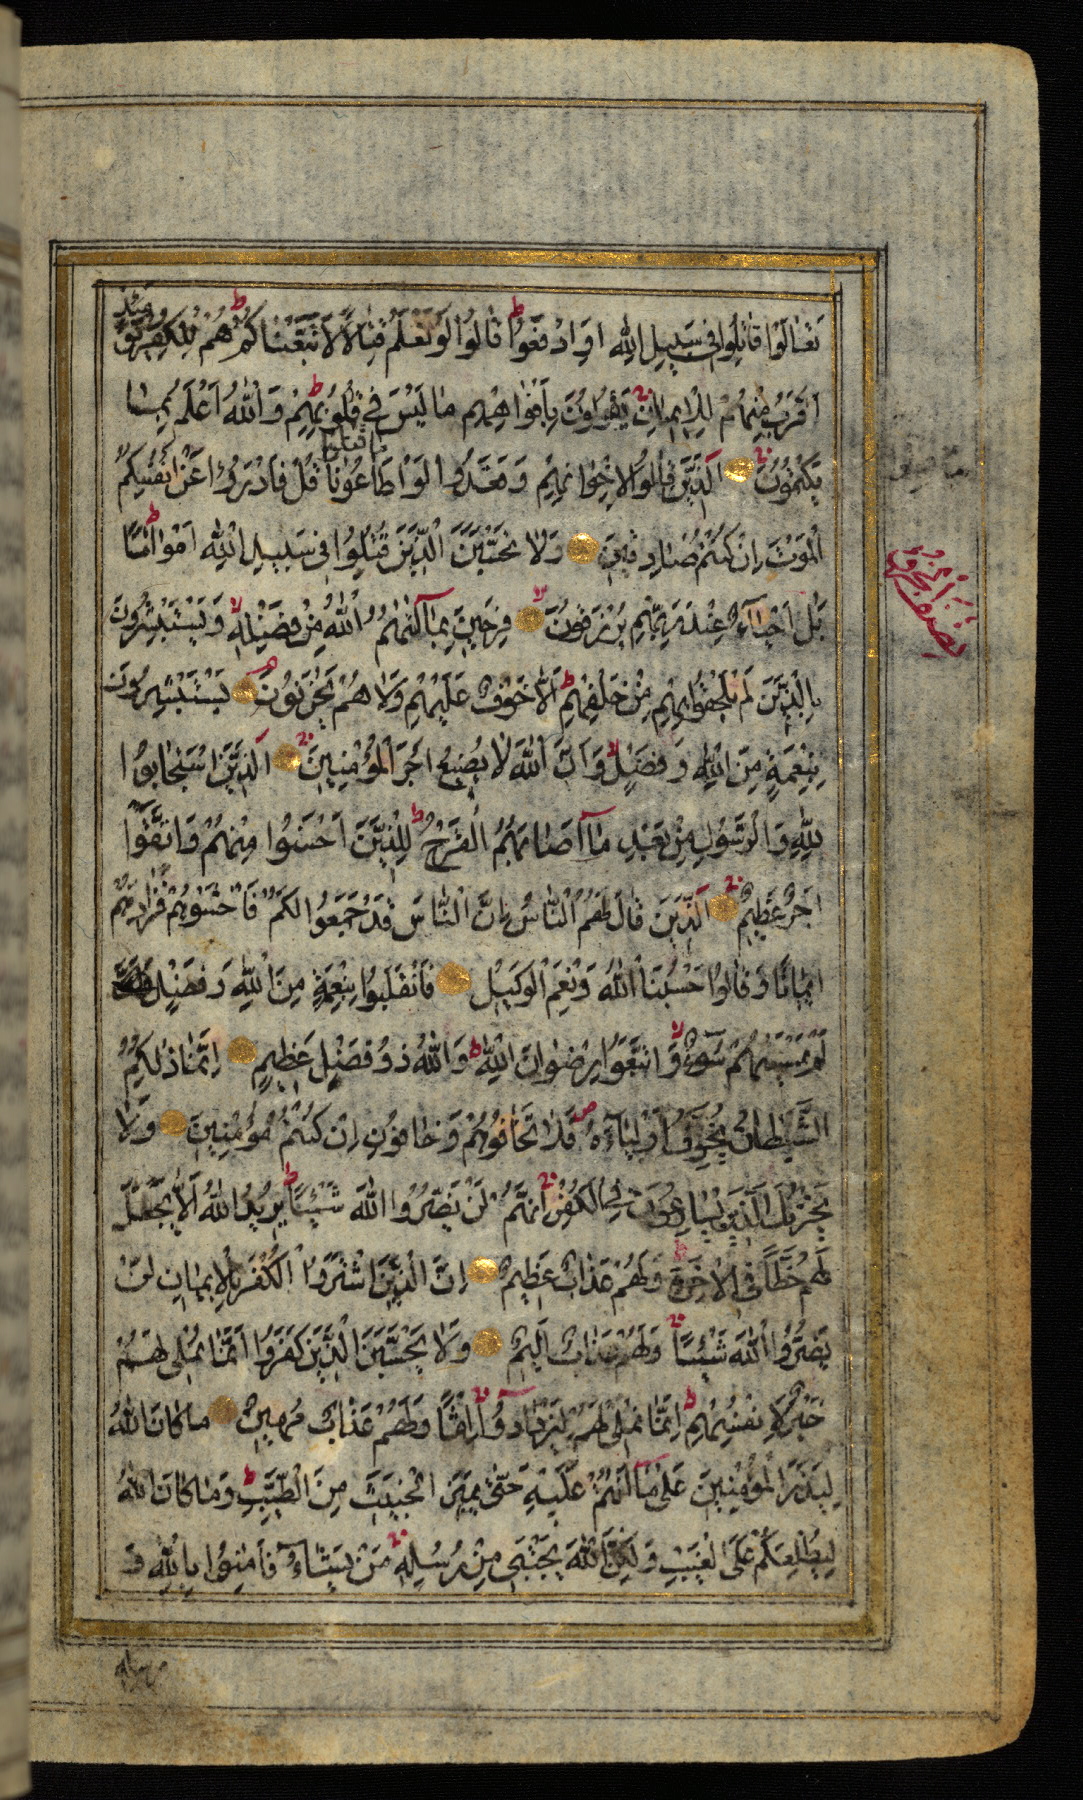 تَعَالَوْا قَاتِلُوا فِي سَبِيلِ اللّٰهِ اَوِ ادْفَعُوا ط قَالُوا لَوْ نَعْلَمُ قِتَالًا لَاتَّبَعْنَاكُمْ ط هُمْ لِلْكُفْرِ يَوْمَئِذٍ
اَقْرَبُ مِنْهُمْ لِلْاِيمَانِ يَقُولُونَ بِاَفْوَاهِهِمْ مَا لَيْسَ فِي قُلُوبِهِمْ ط وَاللّٰهُ اَعْلَمُ بِمَا
يَكْتُمُونَ اَلَّذِينَ قَالُوا لِاِخْوَانِهِمْ وَقَعَدُوا لَوْ اَطَاعُونَا مَا قُتِلُوا قُلْ فَادْرَؤُا عَنْ اَنْفُسِكُمُ
الْمَوْتَ اِنْ كُنْتُمْ صَادِقِينَ وَلَا تَحْسَبَنَّ الَّذِينَ قُتِلُوا فِي سَبِيلِ اللّٰهِ اَمْوَاتًا ط
بَلْ اَحْيَآءٌ عِنْدَ رَبِّهِمْ يُرْزَقُونَ لا فَرِحِينَ بِمَآ اٰتٰهُمُ اللّٰهُ مِنْ فَضْلِهِ لا وَيَسْتَبْشِرُونَ
بِالَّذِينَ لَمْ يَلْحَقُوا بِهِمْ مِنْ خَلْفِهِمْ ط اَلَّا خَوْفٌ عَلَيْهِمْ وَلَا هُمْ يَحْزَنُونَ يَسْتَبْشِرُونَ
بِنِعْمَةٍ مِنَ اللّٰهِ وَفَضْلٍ لا وَاَنَّ اللّٰهَ لَا يُضِيعُ اَجْرَ الْمُؤْمِنِينَ اَلَّذِينَ اسْتَجَابُوا
لِلّٰهِ وَالرَّسُولِ مِنْ بَعْدِ مَآ اَصَابَهُمُ الْقَرْحُ ط لِلَّذِينَ اَحْسَنُوا مِنْهُمْ وَاتَّقَوْا
اَجْرٌ عَظِيمٌ اَلَّذِينَ قَالَ لَهُمُ النَّاسُ اِنَّ النَّاسَ قَدْ جَمَعُوا لَكُمْ فَاخْشَوْهُمْ فَزَادَهُمْ
اِيمَانًا وَقَالُوا حَسْبُنَا اللّٰهُ وَنِعْمَ الْوَكِيلُ فَانْقَلَبُوا بِنِعْمَةٍ مِنَ اللّٰهِ وَفَضْلٍ
لَمْ يَمْسَسْهُمْ سُوءٌ لا وَاتَّبَعُوا رِضْوَانَ اللّٰهِ ط وَاللّٰهُ ذُو فَضْلٍ عَظِيمٍ اِنَّمَا ذٰلِكُمُ
الشَّيْطَانُ يُخَوِّفُ اَوْلِيَآءَهُ ص فَلَا تَخَافُوهُمْ وَخَافُونِ اِنْ كُنْتُمْ مُؤْمِنِينَ وَلَا
يَحْزُنْكَ الَّذِينَ يُسَارِعُونَ فِي الْكُفْرِ اِنَّهُمْ لَنْ يَضُرُّوا اللّٰهَ شَيْئًا ط يُرِيدُ اللّٰهُ اَلَّا يَجْعَلَ
لَهُمْ حَظًّا فِي الْاٰخِرَةِ وَلَهُمْ عَذَابٌ عَظِيمٌ اِنَّ الَّذِينَ اشْتَرَوُا الْكُفْرَ بِالْاِيمَانِ لَنْ
يَضُرُّوا اللّٰهَ شَيْئًا وَلَهُمْ عَذَابٌ اَلِيمٌ وَلَا يَحْسَبَنَّ الَّذِينَ كَفَرُوا اَنَّمَا نُمْلِي لَهُمْ
خَيْرٌ لِاَنْفُسِهِمْ ط اِنَّمَا نُمْلِي لَهُمْ لِيَزْدَادُوآ اِثْمًا وَلَهُمْ عَذَابٌ مُهِينٌ مَا كَانَ اللّٰهُ
لِيَذَرَ الْمُؤْمِنِينَ عَلٰى مَآ اَنْتُمْ عَلَيْهِ حَتّٰى يَمِيزَ الْخَبِيثَ مِنَ الطَّيِّبِ ط وَمَا كَانَ اللّٰهُ
لِيُطْلِعَكُمْ عَلَى الْغَيْبِ وَلٰكِنَّ اللّٰهَ يَجْتَبِي مِنْ رُسُلِهِ مَنْ يَشَآءُ فَاٰمِنُوا بِاللّٰهِ وَ